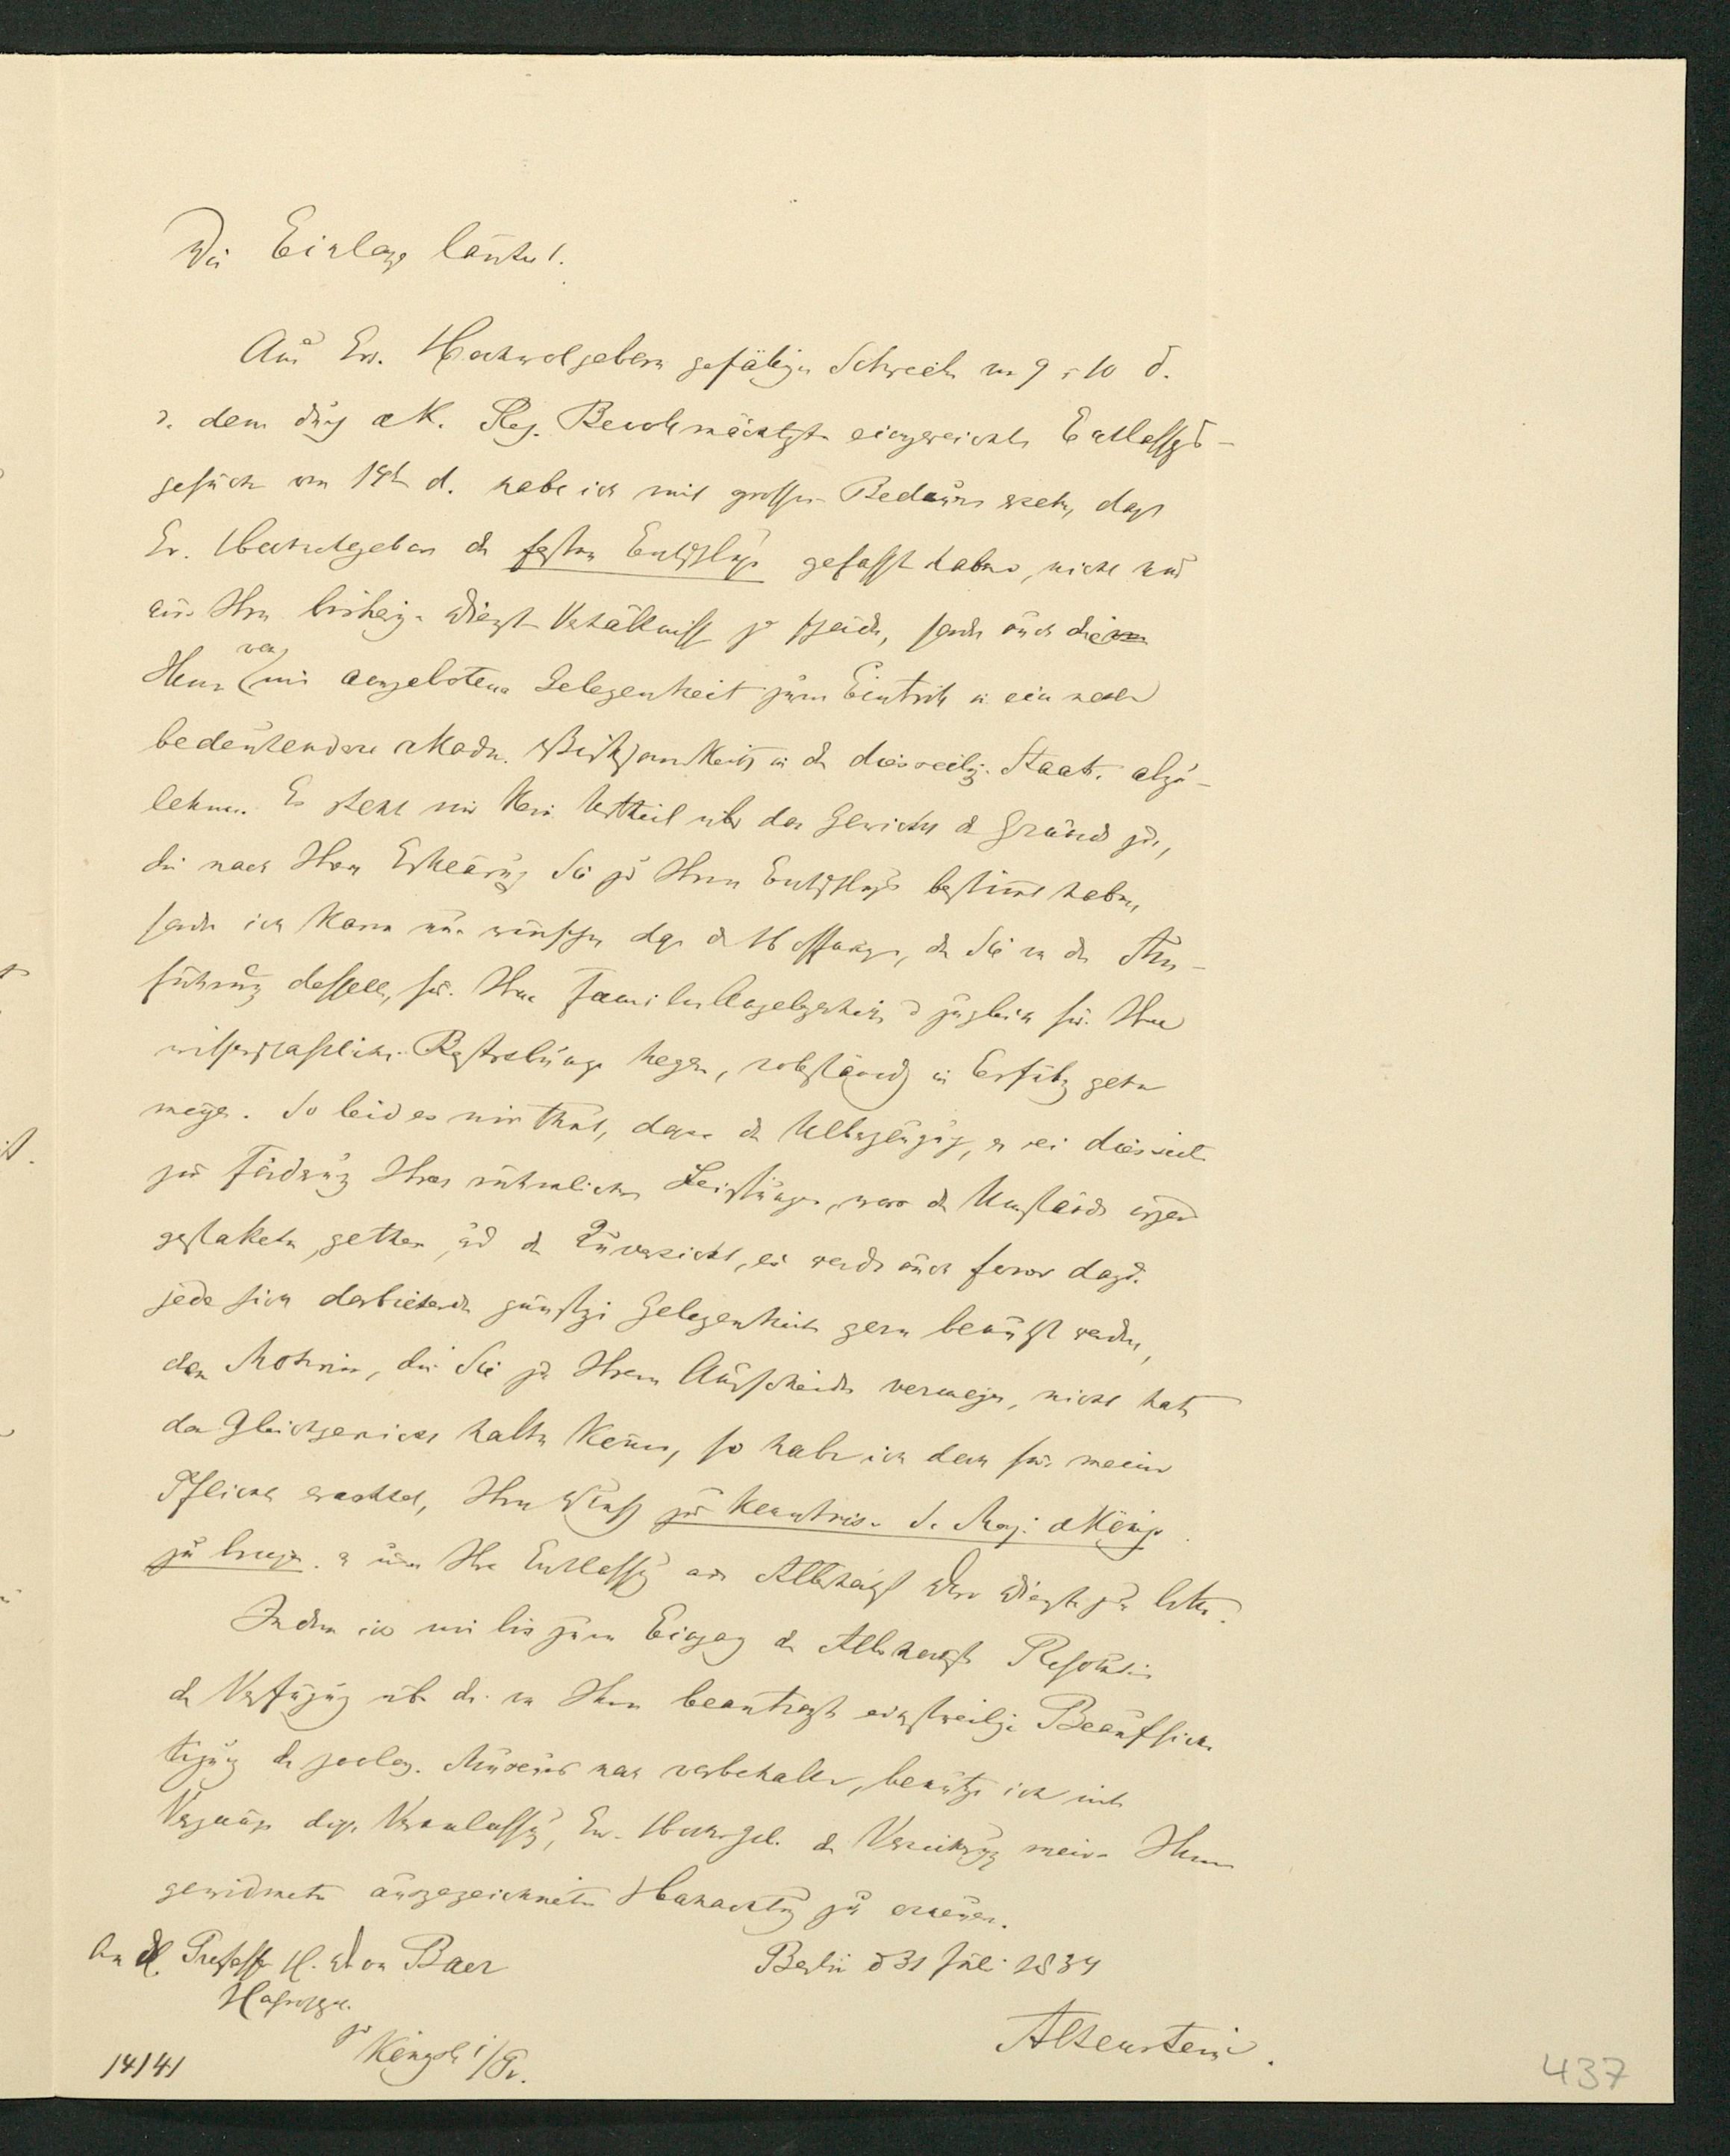 Die Einlage lautet.
Aus Ew. Hochwolgeborn gefällign Schreibn vm 9 u 10 d.
u. dem durch d K. Reg. Bevollmächtigtn eingereichtn Entlassgs-
gesuch vom 14t d. habe ich mit grossem Bedauern ersehn, dass
Ew. Hochwolgeborn dn festen Entschluss gefasst haben, nicht nur
aus Ihrn bisherign Dienst Verhältnissn zu scheidn, sondn auch die
Ihnen von mir angebotene Gelegenheit zum Eintritt in ein neue
bedeutendere akadm. Wirksamkeit in dn diesseitign Staatn abzu-
lehnen. Es steht mir kein Urtheil über das Gewicht d Gründe zu,
die nach Ihrer Erklärung Sie zu Ihrem Entschluss bestimt haben,
sondn ich kann nur wünschen dass d Hoffnungen, die Sie von dr Aus-
führung desselbn, für Ihre FamilienAngelegenheitn u zugleich für Ihre
wissenschaftlichn Bestrebungn hegen, vollständig in Erfüllg gehn
mögen. So leid es mir thut, dass die Ueberzeugung, es sei diesseits
zur Förderung Ihrer rühmlichen Leistungen, was die Umstände irgend
gestatten, gethan, und die Zuversicht, es werde auch ferner dazu
jede sich darbietende günstige Gelegenheit gern benützt werden,
den Motiven, die Sie zu Ihrem Ausscheiden vermögen, nicht hat
das Gleichgewicht halten können, so habe ich doch für meine
Pflicht erachtet, Ihren Wunsch zur Kenntniss Sr Maj. d Königs
zu bringen u um Ihre Entlassg aus Allerhöchst Dero Dienste zu bittn.
Indem ich mir bis zum Eingang dr Allerhöchstn Resolution
die Verfügung über die von Ihnen beantragte einstweilige Beaufsich-
tigung des zoolog. Museums noch vorbehalte, benütze ich mit
Vergnügen diese Veranlassg, Ew. Hochwolgeb. die Versicherung meiner Ihnen
gewidmetn ausgezeichnetn Hochachtung zu erneuen.
An H. Professor H. Von Baer
Berlin d 31 Juli 1834
Hochwolgeb.
zu Königsb i/Pr.
Altenstein.
14141
437